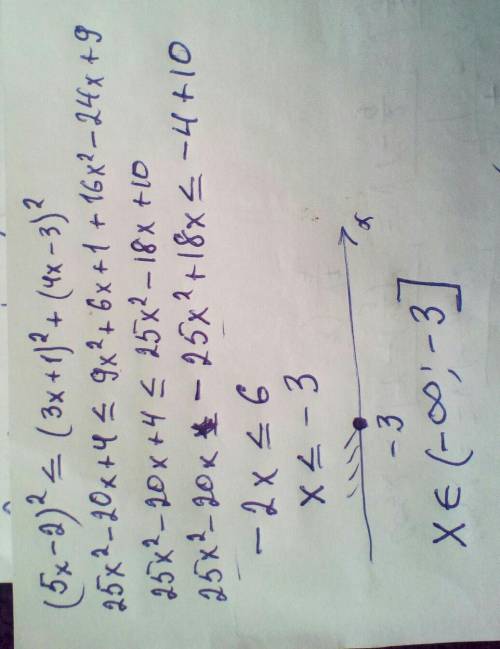 (5x-2)² ≤ (3x+1)² + (4x-3)²
25x²-20x+4 ≤ 9x²+6x+1+16x²-24x+9
25x²-20x+4 ≤ 25x²-18x+10
25x²-20x - 25x²+18x ≤ -4+10
-2x ≤ 6
x ≤ -3
-3 x
x ∈ (-∞; -3]